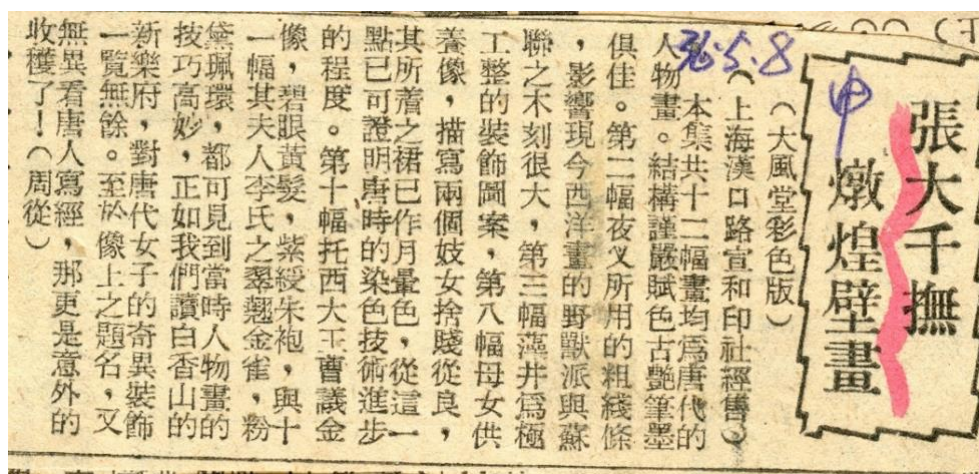 張大千撫
燉煌壁畫
36.5.8
申
（大風堂彩色版）
（上海漢口路宣和印社經售）
本集共十二幅畫均爲唐代的
人物畫。結構謹嚴賦色古艷筆墨
俱佳。第二幅夜叉所用的粗綫條
，影響現今西洋畫的野獸派與蘇
聯之木刻很大，第三幅藻井爲極
工整的裝飾圖案，第八幅母女供
養像，描寫兩個妓女捨賤從良，
其所着之裙已作月暈色，從這一
點已可證明唐時的染色技術進步
的程度。第十幅托西大王曹議金
像，碧眼黃髮，紫綬朱袍，與十
一幅其夫人李氏之翠翹金雀，粉
黛珮環，都可見到當時人物畫的
技巧高妙，正如我們讀白香山的
新樂府，對唐代女子的奇異裝飾
一覽無餘。至於像上之題名，又
無異看唐人寫經，那更是意外的
收穫了！（周從）